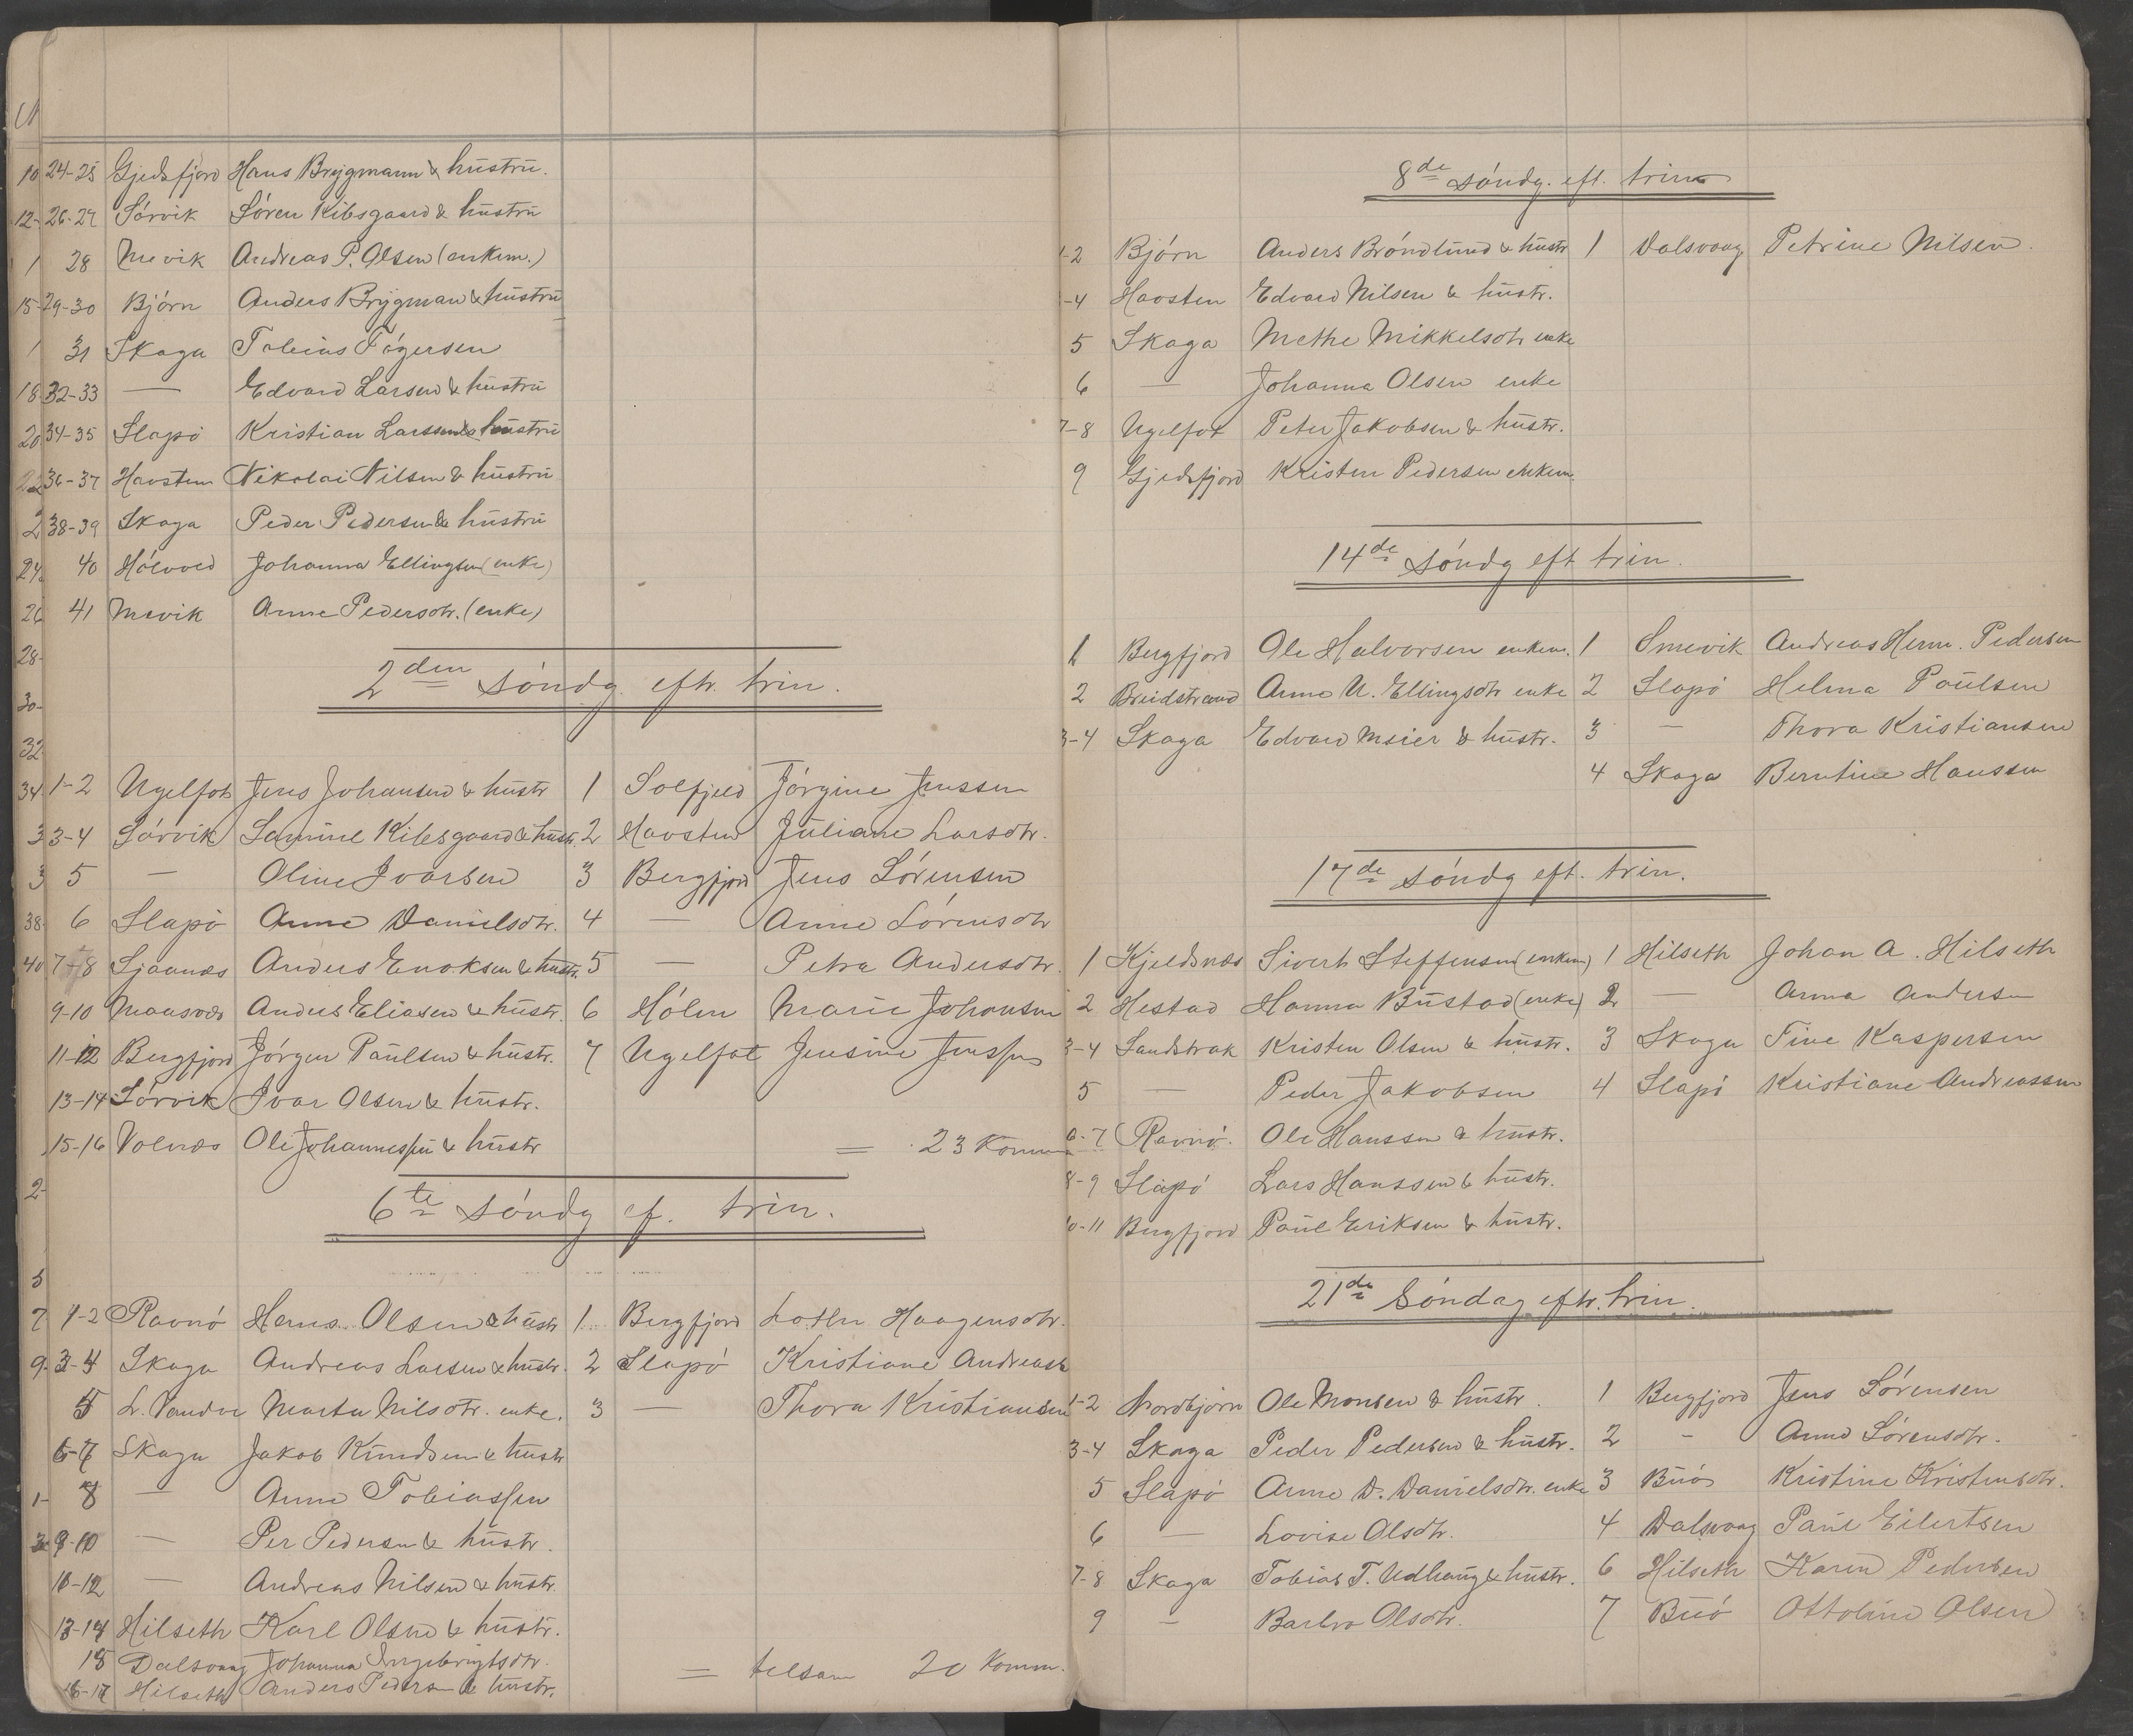 24-25 Gjedsfjord Hans Brygmann & hustru.
26-27 Sórvik Sóren Kibsgaard & hustru
28 Mevik Andreas P. Olsen (enkem.)
29-30 Bjórn Anders Brygman & hustru
31 Skaga Tobias Tógersen
32-33 — Edvard Larsen & hustru
34-35 Slapó Kristian Larssen & hustru
36-37 Havsten Nikolai Nilsen & hustru
38-39 Skaga Peder Pedersen & hustru
40 Hólvold Johanna Ellingsen (enke)
41 Mevik Anne Pedersdtr. (enke)
2den sóndg. eftr. trin.
1-2 Ugelfot Jens Johansen & hustr 1 Solfjeld Jórgine Jenssen
3-4 Sórvik Samuel Kibsgaard & hustr. 2 Havsten Juliane Larsdtr.
5 — Oline Ivarsen 3 Bergfjord Jens Sórensen
6 Slapó Anne Danielsdtr. 4 — Anne Sórensdtr
7-8 Sjaanæs Anders Enoksen & hustr. 5 — Petra Andersdtr.
9-10 Maasvær Anders Eliasen & hustr. 6 Hólen Marie Johansen
11-12 Bergfjord Jórgen Paulsen & hustr. 7 Ugelfot Jensine Jenssen
13-14 Sórvik Ivar Olsen & hustr.
15-16 Volnæs Ole Johannessen & hustr
= 23 Komm
6te sóndg ef. trin.
1-2 Ravnó Hans Olsen & hustr 1 Bergfjord Lother Haagensdtr.
3-4 Skaga Andreas Larsen & hustr. 2 Slapó Kristiane Andreass
5 L. Vandve Marta Nilsdtr. enke. 3 — Thora Kristiansen
6-7 Skaga Jakob Knudsen & hustr
8 — Anne Tobiassen
9-10 — Per Pedersen & hustr.
10-12 — Andreas Nilsen & hustr.
13-14 Hilseth Karl Olsen & hustr.
15 Dalsvaag Johanna Ingebrigtsdtr.
16-17 Hilseth Anders Pedersen & hustr.
= tilsam 20 Komm.
8de sóndg. eft. trin
1-2 Bjórn Anders Bróndlund & hustr 1 Dalsvaag Petrine Nilsen.
-4 Havsten Edvard Nilsen & hustr.
5 Skaga Methe Mikkelsdtr enke
6 — Johanna Olsen enke
7-8 Ugelfot Peter Jakobsen & hustr.
9 Gjedsfjord Kristen Pedersen enkem.
14de sóndg eft trin.
1 Bergfjord Ole Halvorsen enkem. 1 Smevik Andreas Herm. Pedersen
2 Breidstrand Anne U. Ellingsdtr enke 2 Slapó Helma Poulsen
3-4 Skaga Edvard Meier & hustr. 3 — Thora Kristiansen
4 Skaga Berntine Hanssen
17de sóndg eft. trin.
1 Kjeldsnæs Sivert Steffensen (enkem) 1 Hilseth Johan A. Hilseth
2 Hestad Hanna Bustad (enke) 2 — Anna Andersen
3-4 Sandstrak Kristen Olsen & hustr. 3 Skaga Fine Kaspersen
5 — Peder Jakobsen 4 Slapó Kristiane Andreassen
6-7 Ravnó. Ole Hanssen & hustr.
8-9 Slapó Lars Hanssen & hustr.
10-11 Bergfjord Paul Eriksen & hustr.
21de Sóndag eftr. trin.
1-2 Nordbjórn Ole Monsen & hustr. 1 Bergfjord Jens Sórensen
3-4 Skaga Peder Pedersen & hustr. 2 - Anne Sórensdtr.
5 Slapó Anne D. Danielsdtr. enke 3 Buó Kristine Kristensdtr.
6 — Lovise Olsdtr. 4 Dalsvaag Paul Eilertsen
7-8 Skaga Tobias T. Udhaug & hustr. 6 Hilseth Karen Pedersen
9 — Barbro Olsdtr. 7 Buó Ottoline Olsen